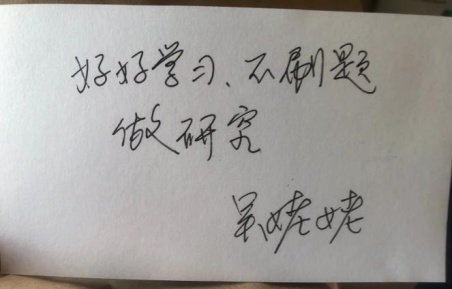 好好学习、不刷题
做研究
吴姥姥